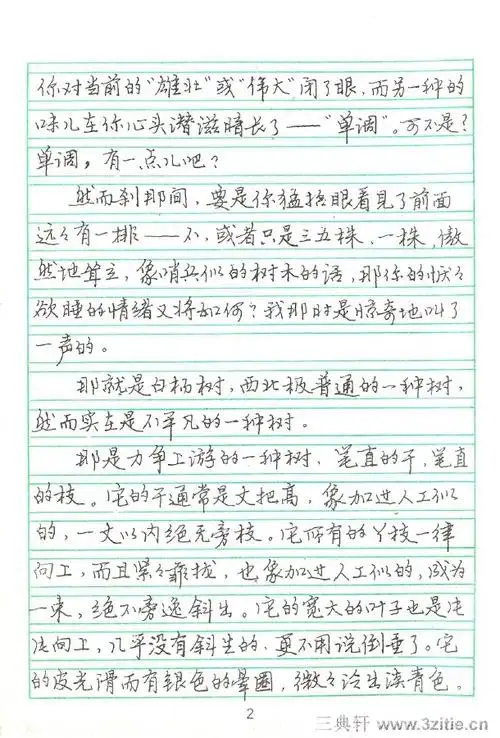 你对当前的“雄壮”或“伟大”闭了眼，而另一种的
味儿在你心头潜滋暗长了——“单调”。可不是？
单调，有一点儿吧？
然而刹那间，要是你猛抬眼看见了前面
远々有一排——不，或者只是三五株，一株，傲
然地耸立，像哨兵似的树木的话，那你的恹々
欲睡的情绪又将如何？我那时是惊奇地叫了
一声的。
那就是白杨树，西北极普通的一种树，
然而实在是不平凡的一种树。
那是力争上游的一种树，笔直的干，笔直
的枝。它的干通常是丈把高，像加过人工似
的，一丈以内绝无旁枝。它所有的丫枝一律
向上，而且紧々靠拢，也像加过人工似的，成为
一束，绝不旁逸斜出。它的宽大的叶子也是片
片向上，几乎没有斜生的，更不用说倒垂了。它
的皮光滑而有银色的晕圈，微々泛出淡青色。
2
三典轩 www.3zitie.cn